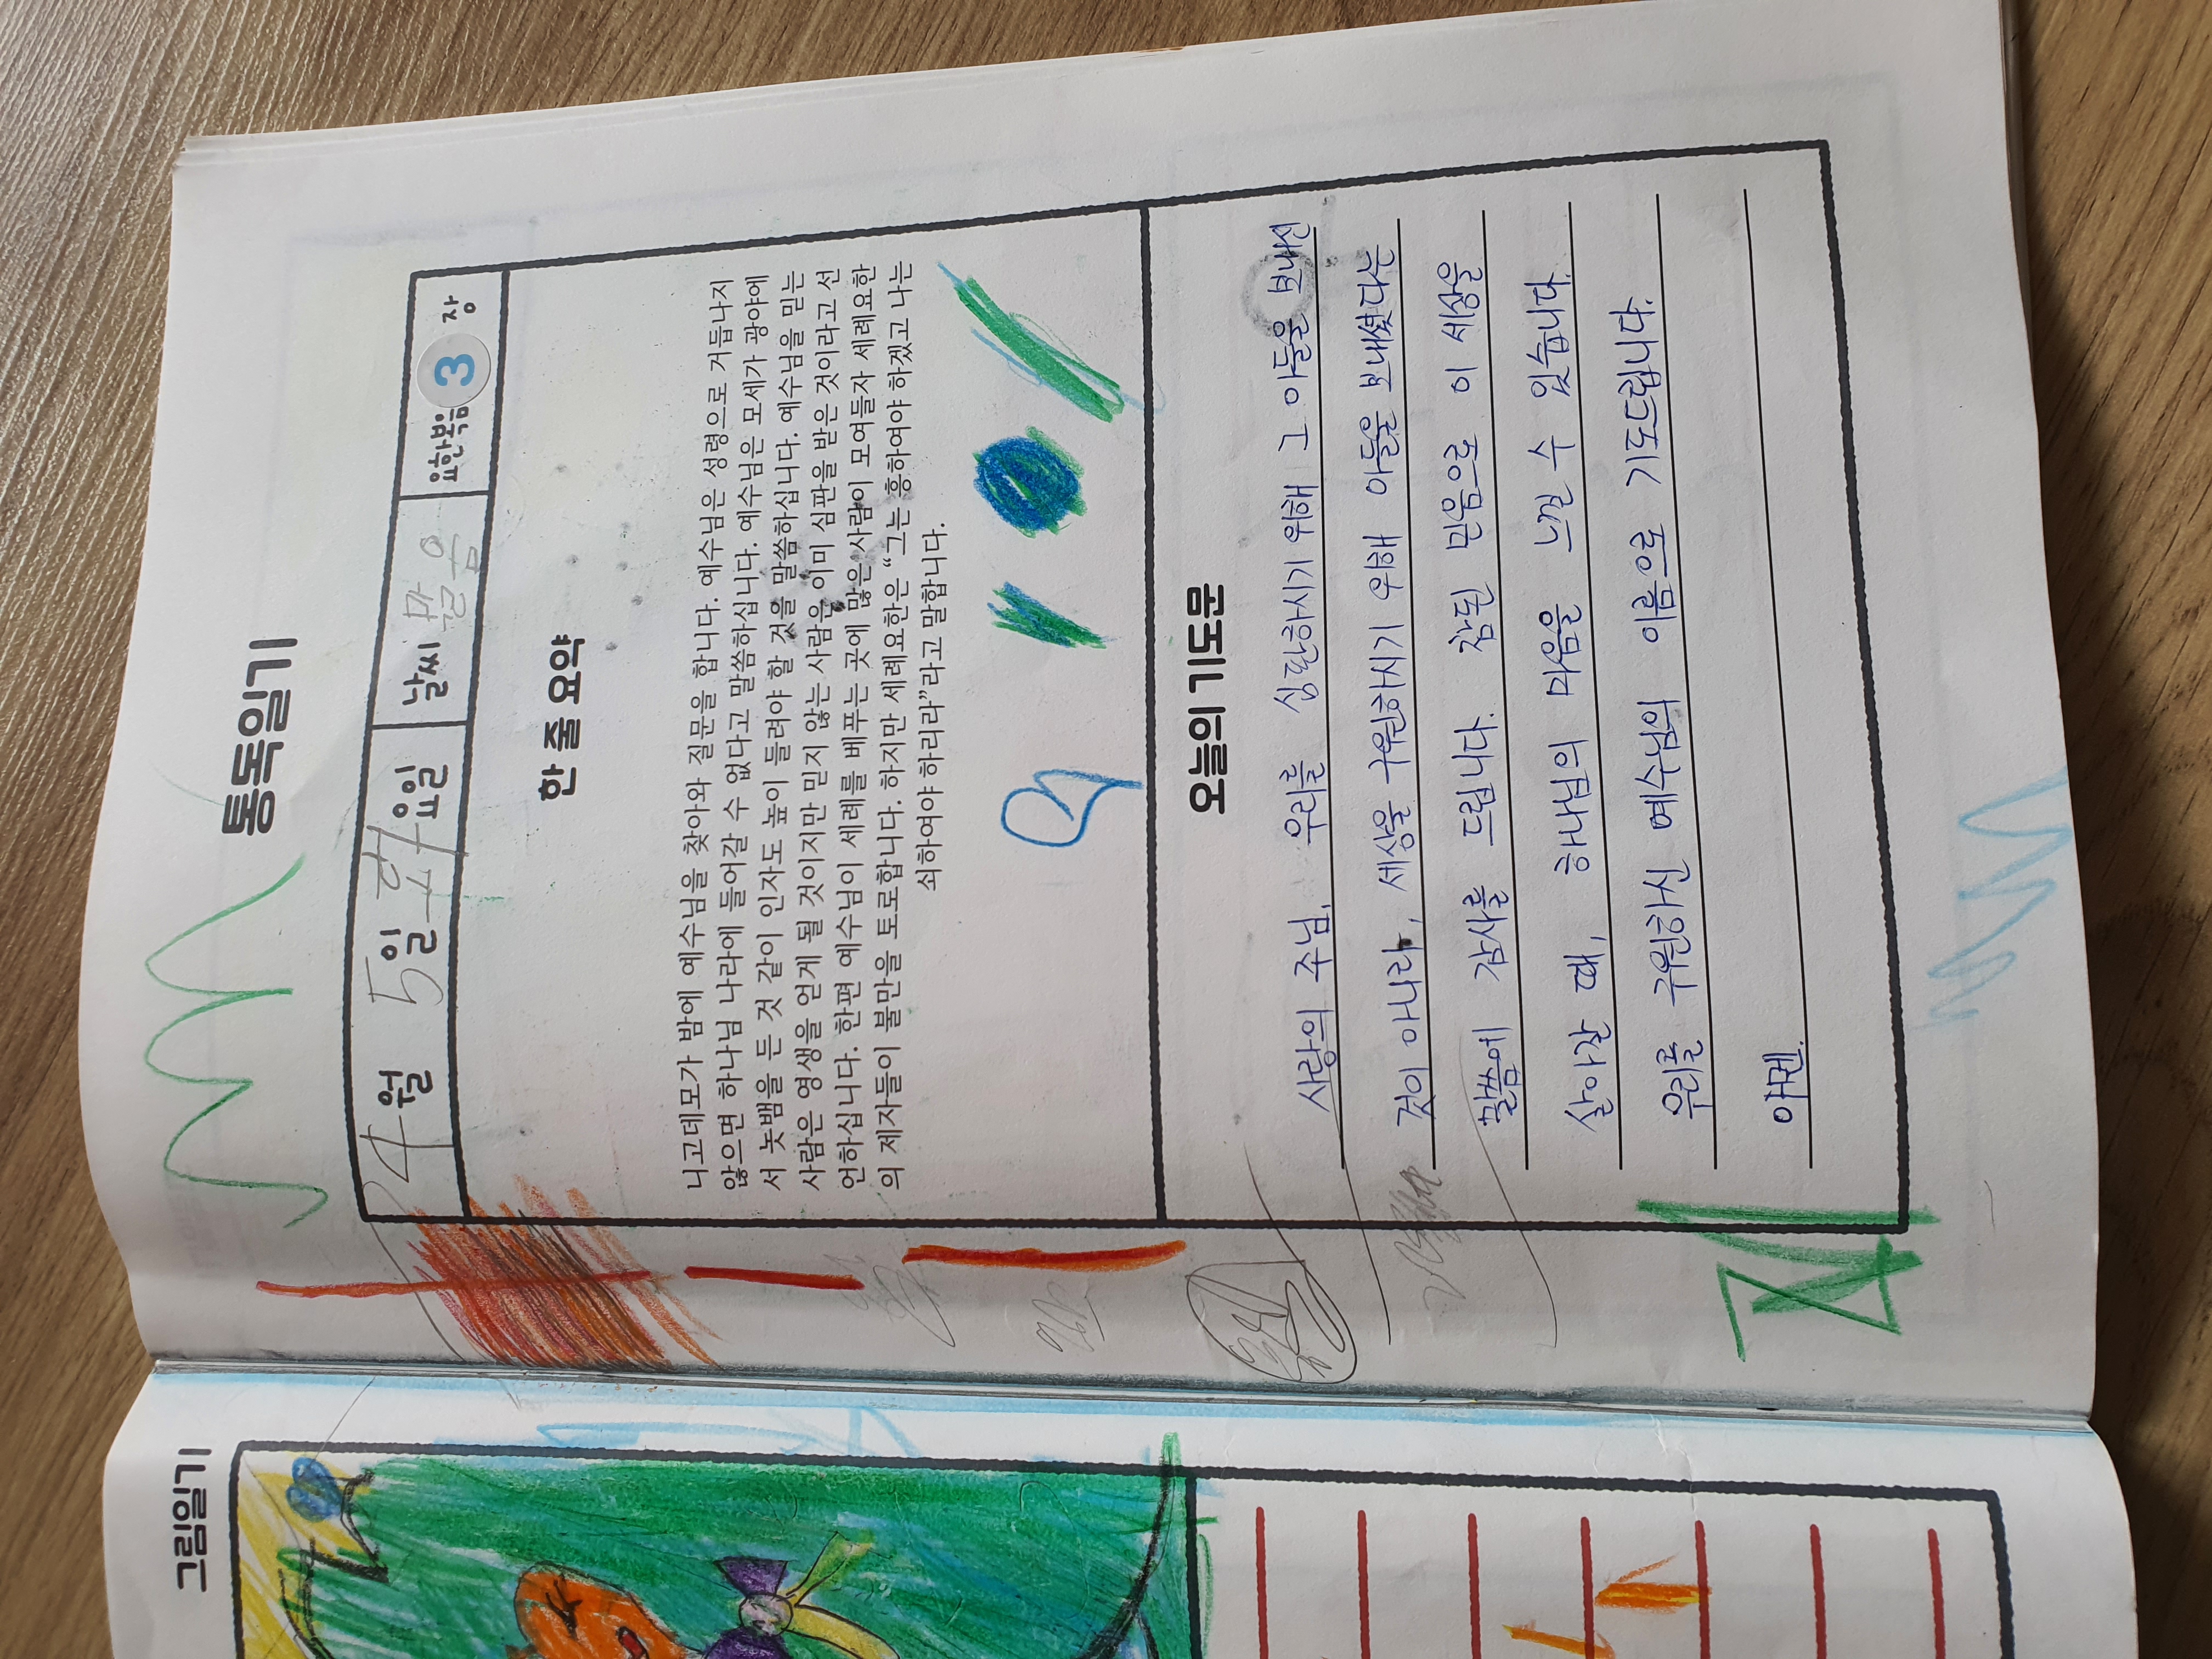 그림일기
통독일기
4월 5일 화요일 날씨 맑음 요한복음 3장
한 줄 요약
니고데모가 밤에 예수님을 찾아와 질문을 합니다. 예수님은 성령으로 거듭나지
않으면 하나님 나라에 들어갈 수 없다고 말씀하십니다. 예수님은 모세가 광야에
서 놋뱀을 든 것 같이 인자도 높이 들려야 할 것을 말씀하십니다. 예수님을 믿는
사람은 영생을 얻게 될 것이지만 믿지 않는 사람은 이미 심판을 받은 것이라고 선
언하십니다. 한편 예수님이 세례를 베푸는 곳에 많은 사람이 모여들자 세례요한
의 제자들이 불만을 토로합니다. 하지만 세례요한은 “그는 흥하여야 하겠고 나는
쇠하여야 하리라”라고 말합니다.
오늘의 기도문
사랑의 주님, 우리를 심판하시기 위해 그 아들을 보내신
것이 아니라, 세상을 구원하시기 위해 아들을 보내셨다는
말씀에 감사를 드립니다. 참된 믿음으로 이 세상을
살아갈 때, 하나님의 마음을 느낄 수 있습니다.
우리를 구원하신 예수님의 이름으로 기도드립니다.
아멘.